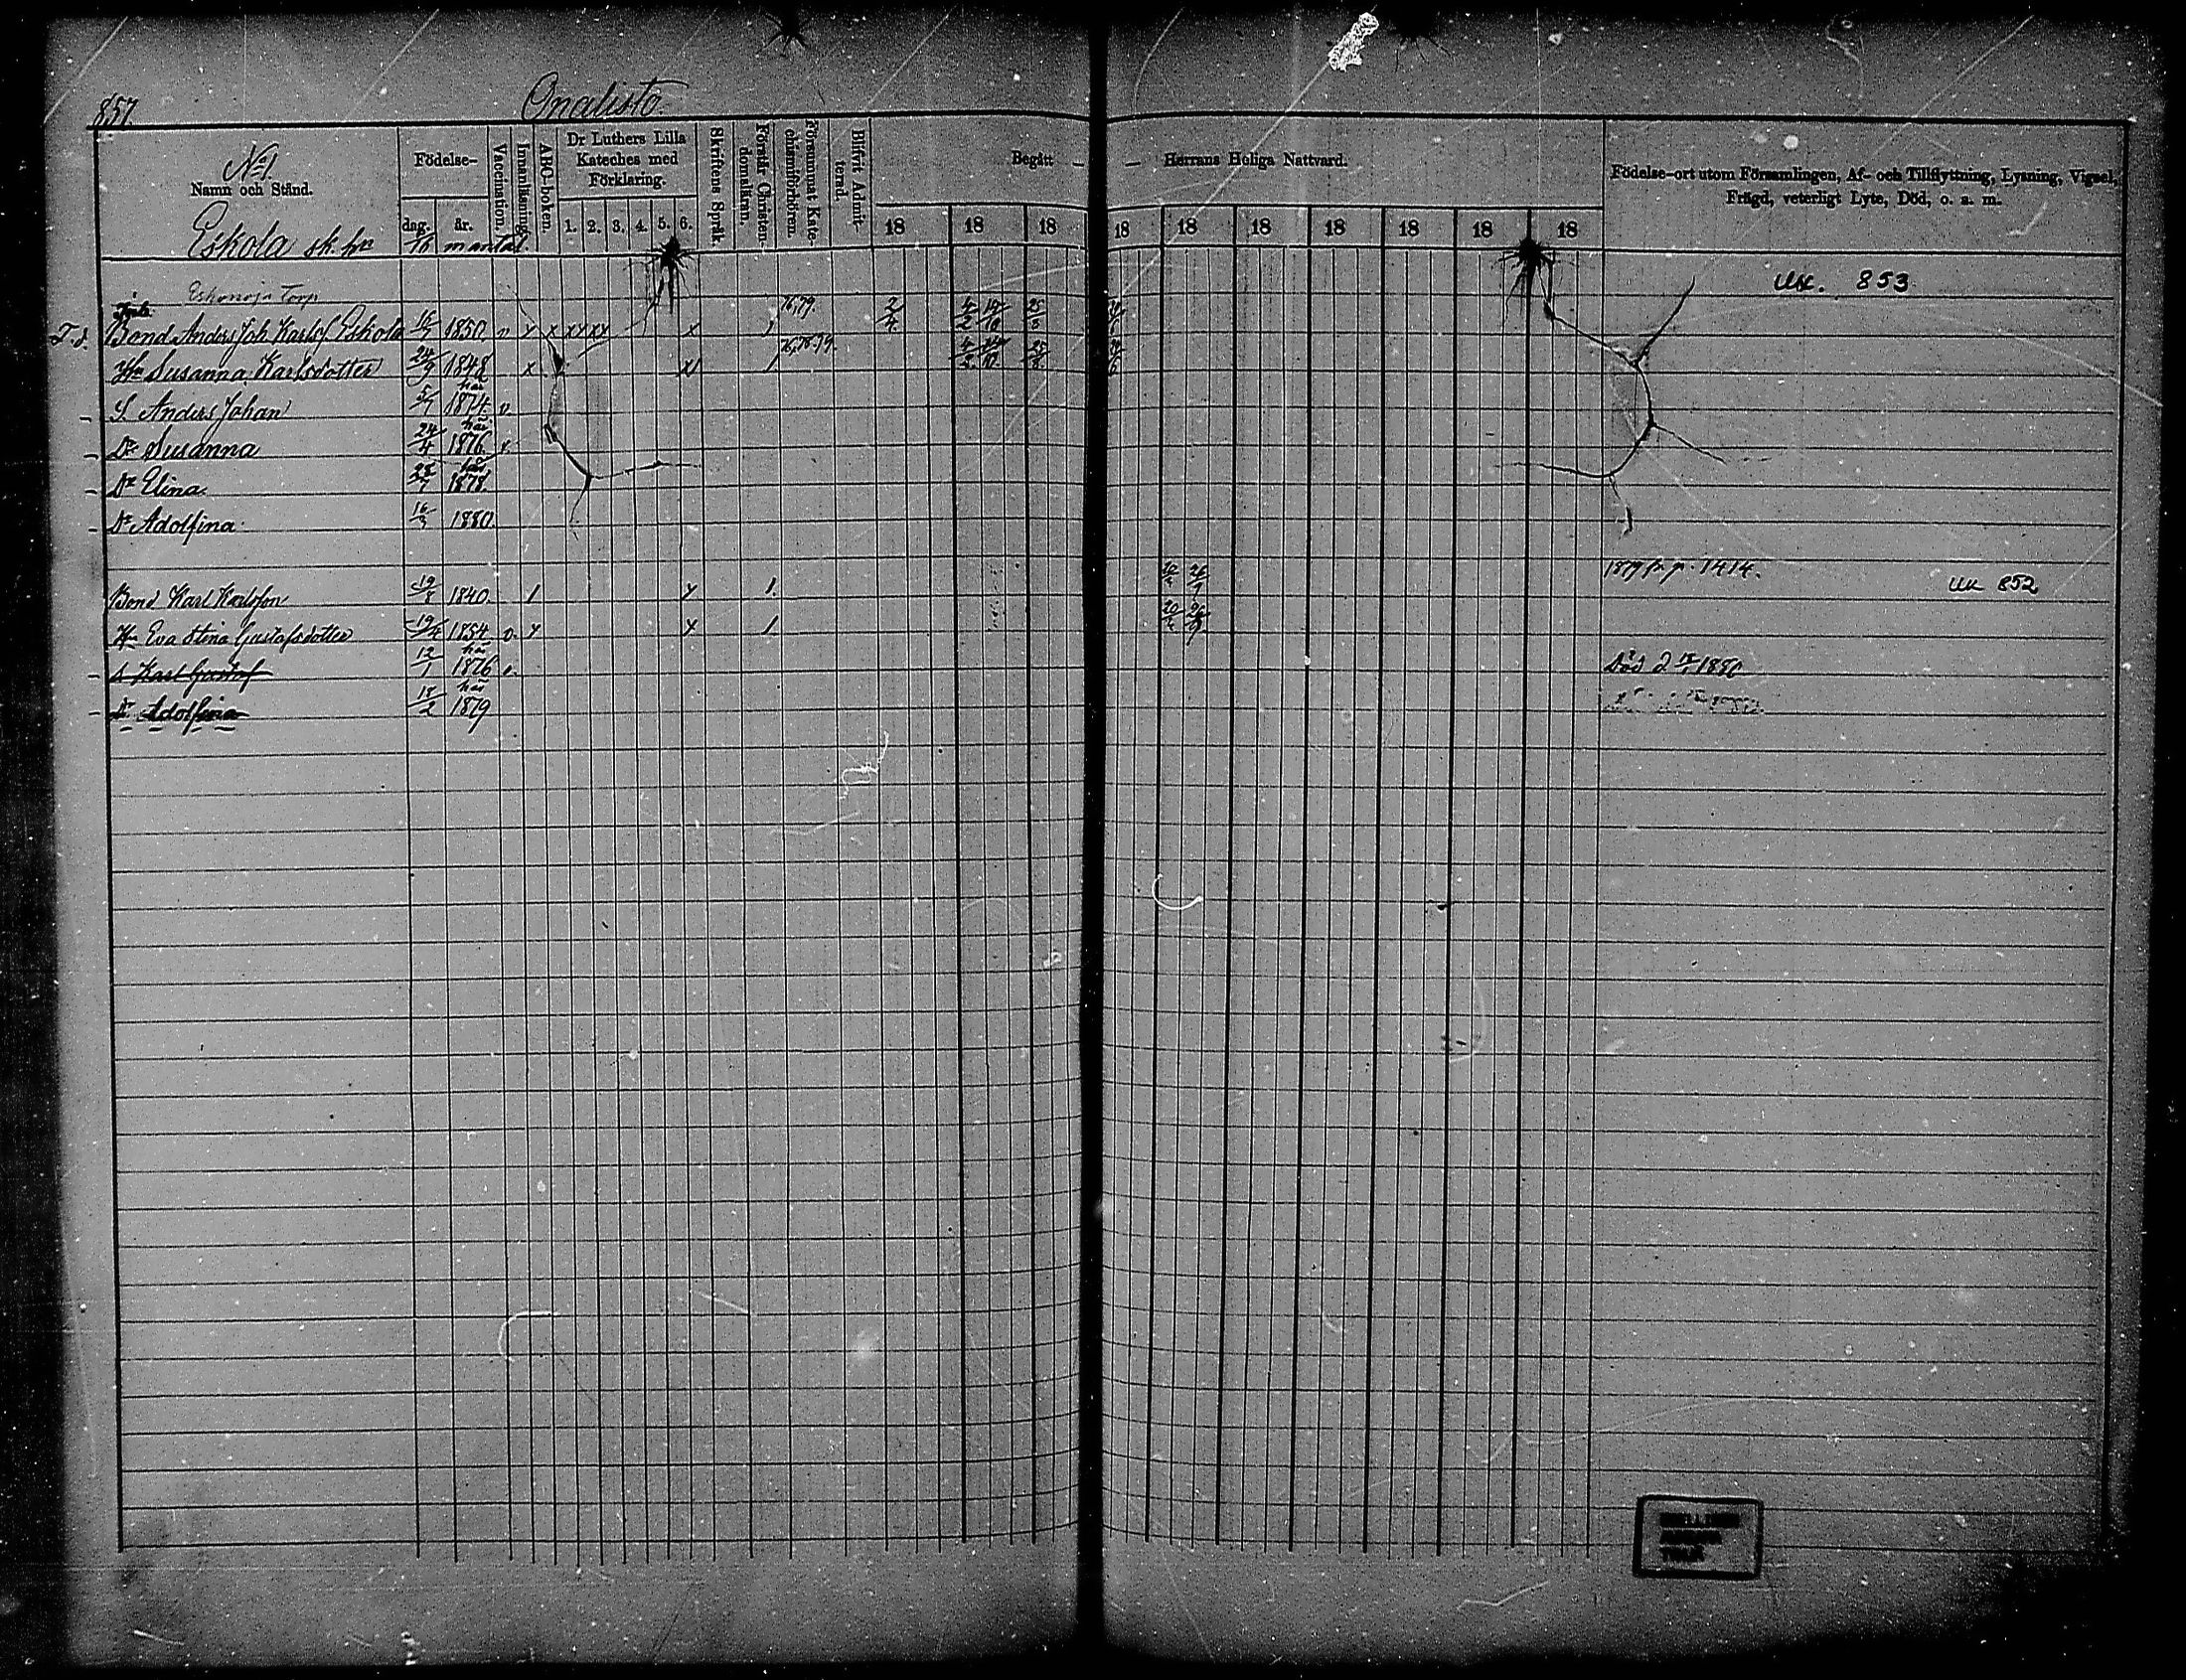 857.
Onalisto.
No 1.
Namn och Stånd.
Födelse-
dag. år.
Vaccination.
Innanläsning.
ABC-boken.
Dr Luthers Lilla
Kateches med
Förklaring.
1. 2. 3. 4. 5. 6.
Skriftens Språk.
Förstår Christen-
domsläran.
Försummat Kate-
chismiförhören.
Blifvit Admit-
terad.
Begått — — Herrans Heliga Nattvard.
18 18 18 18 18 18 18 18 18 18
Födelse-ort utom Församlingen, Af- och Tillflyttning, Lysning, Vigsel,
Frägd, veterligt Lyte, Död, o. s. m.
Eskola sk. hn mantal.
Torp
UK. 853
T.d. Bond Anders Joh. Karlss. Eskola 1850. v x x x x x x x 76,79. 2/4
Hu Susanna Karlsdotter 24/9 1848 x x 76,78,79.
S Anders Johan 5/7 här 1874 v
Dr Susanna 24/4 här 1876
Dr Elina 1878
Dr Adolfina 1880
Bond Karl Karlsson 19/8 1840 1 x 1. 26/9 1879 fr. p. 1414. UK 852
Hu Eva Stina Gustafsdotter 19/4 1854 v. x x 1. 26/9
S Karl Gustaf 12/1 här 1876 Död d 1880
Dr Adolfina 18/2 här 1879